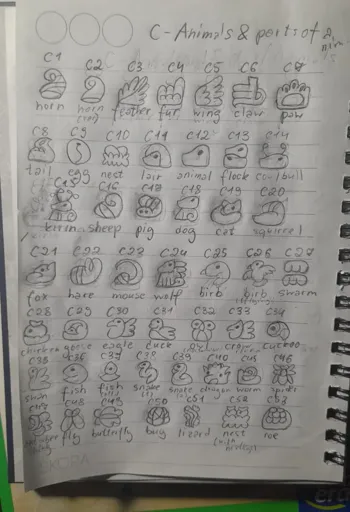 C - Animals & parts of animals
C1 C2 C3 C4 C5 C6 C7
horn horn feather fur wing claw paw
C8 C9 C10 C11 C12 C13 C14
tail egg nest lair animal flock cow/bull
C15 C16 C17 C18 C19 C20
kirin sheep pig dog cat squirrel
C21 C22 C23 C24 C25 C26 C27
fox hare mouse wolf birb birb swarm
C28 C29 C30 C31 C32 C33 C34
chicken goose eagle duck owl crow cuckoo
C35 C36 C37 C38 C39 C40 C45 C46
swan fish fish snake snake dragon worm spider
C48 C49 C50 C51 C52 C53
fly butterfly bug lizard nest roe